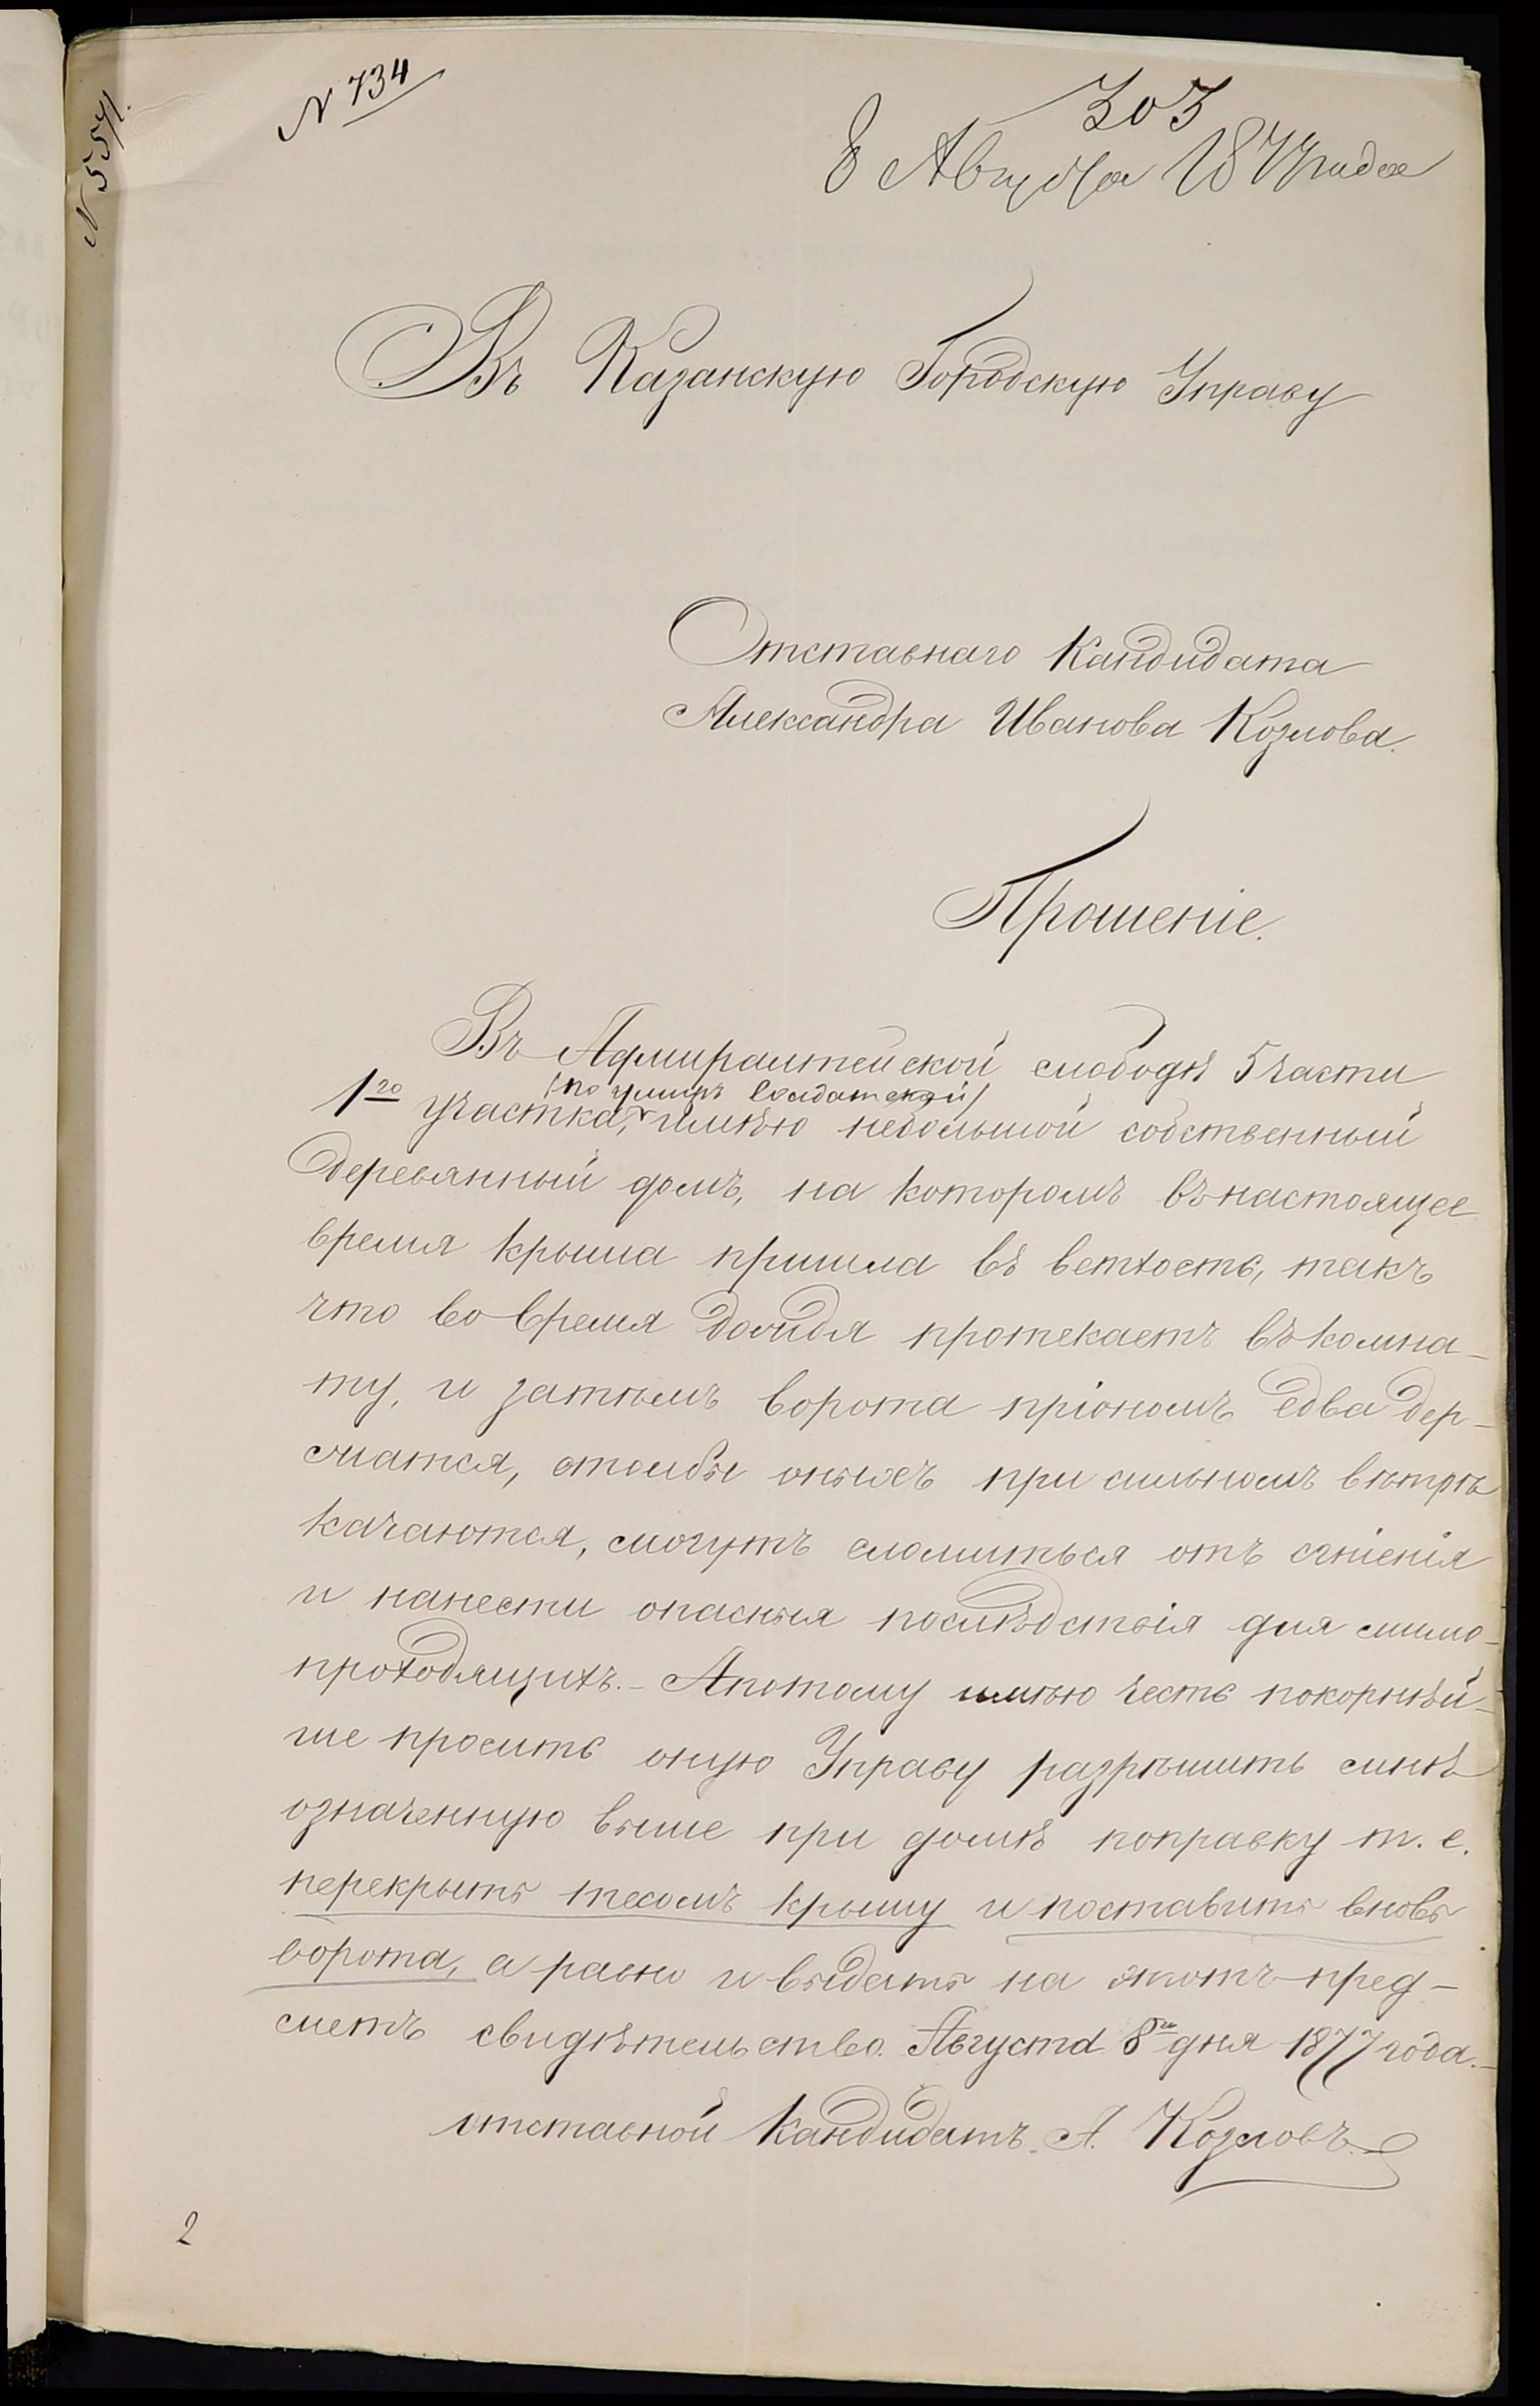 N 734
N 5571.
303
8 Августа 1877 года
Въ Казанскую Городскую Управу
Отставнаго Кандидата
Александра Иванова Козлова.
Прошеніе.
Въ Адмиралтейской слободѣ 5 части
(по улицѣ Солдатской)
1го участка, имѣю небольшой собственный
деревянный домъ, на которомъ въ настоящее
время крыша пришла въ ветхость, такъ
что во время дождя протекаетъ въ комна-
ту, и затѣмъ ворота при ономъ едва дер-
жатся, столбы оныхъ при сильномъ вѣтрѣ
качаются, могутъ сломиться отъ гніенія
и нанести опасныя послѣдствія для мимо-
проходящихъ. - А потому имѣю честь покорнѣй-
ше просить оную Управу разрѣшить мнѣ
означенную выше при домѣ поправку т. е.
перекрыть тесомъ крышу и поставить вновь
ворота, а равно и выдать на этотъ пред-
метъ свидѣтельство. Августа 8го дня 1877 года. -
отставной Кандидатъ А. Козловъ
2